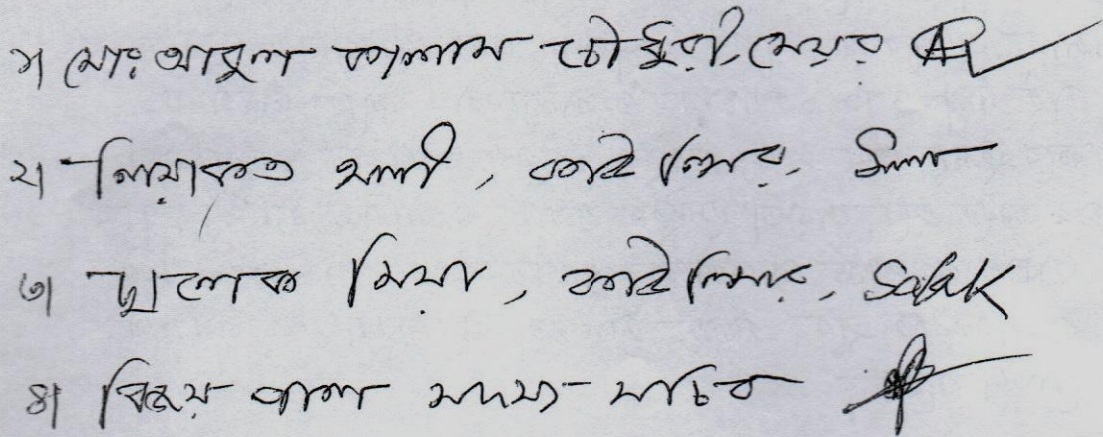 ১। মোঃ আবুল কালাম চৌধুরী, মেয়র
২। লিয়াকত আলী, কাউন্সিলর,
৩। ছালেক মিয়া, কাউন্সিলর, Salak
৪। বিজয় পাল সদস্য সচিব